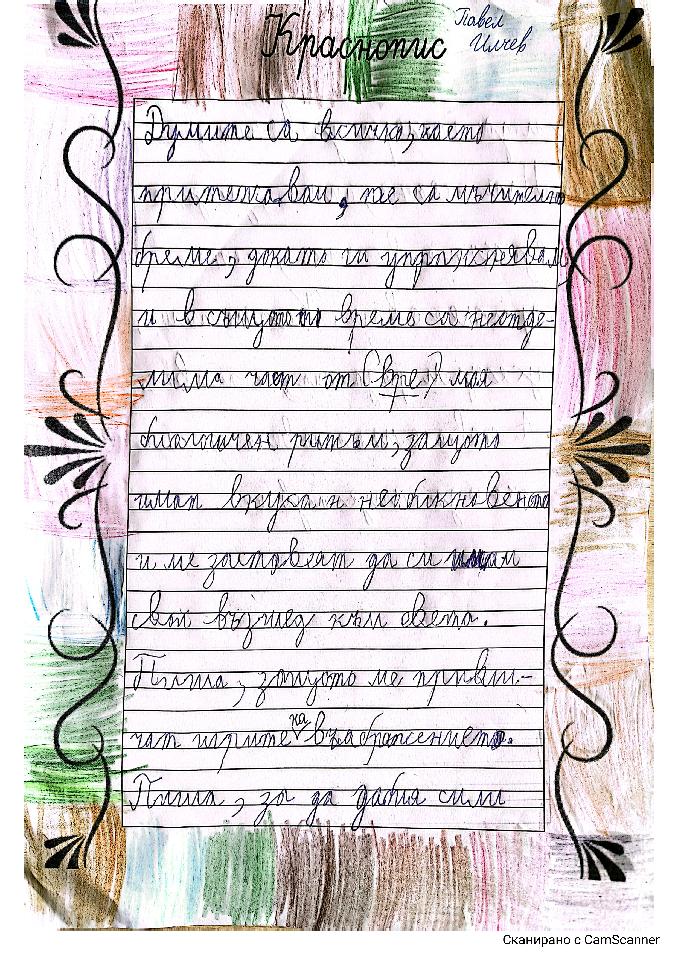 Краснопис
Павел
Илчев
Думите са всичко, което
притежавам, те са мъчително
бреме, докато ги упражнявам
и в същото време са неотде-
лима част от (вре) моя
биологичен ритъм, защото
имат вкуса на необикновеното
и ме заставят да си имам
свой възглед към света.
Пиша, защото ме привли-
чат игрите на въображението.
Пиша, за да добия сили
Сканирано с CamScanner